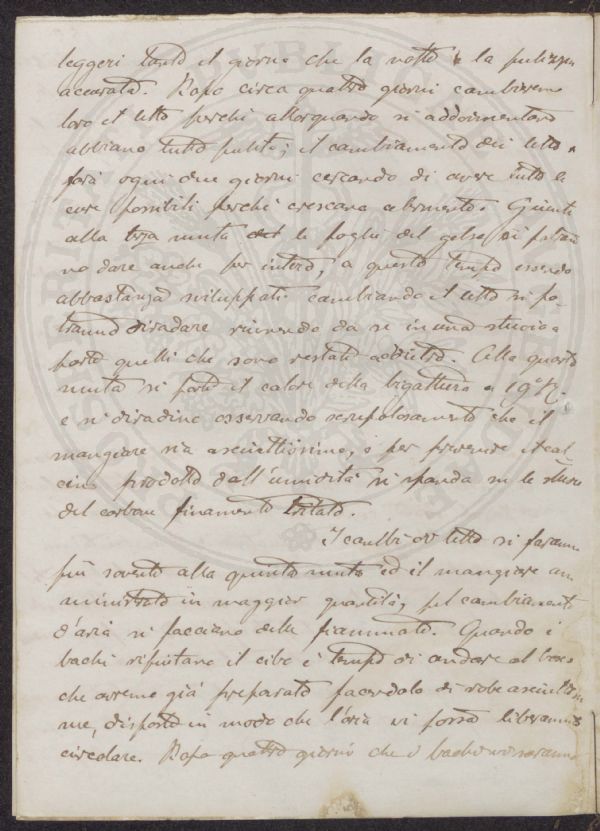 leggeri tanto il giorno che la notte e la pulizzia
accurata. Dopo circa quattro giorni cambieremo
loro il letto perchè allorquando si addormentano
abbiano tutto pulito; il cambiamento dei letti si
farà ogni due giorni cercando di avere tutte le
cure possibili perchè crescano a brucento. Giunti
alla terza muta le foglie del gelso si potran
no dare anche per intero, a questo tempo essendo
abbastanza sviluppati cambiando il letto si po-
tranno diradare riunendo da se in una stuoia a
parte quelli che sono restati addietro. Alla quarta
muta si porta il calore della bigattiera a 19° R.
e si diradino osservando scrupolosamente che il
mangiare sia asciuttissimo, e per prevenire il cal
cino prodotto dall'umidità si spanda su le stuoie
del carbone finamente
I cambi di letto si faranno
più sovente alla quinta muta ed il mangiare am
ministrato in maggior quantità, pel cambiamento
d'aria si facciano delle fiammate. Quando i
bachi rifiutano il cibo è tempo di andare al bosco
che avremo già preparato facendolo di robe asciuttissi
me, disposto in modo che l'aria vi possa liberamente
circolare. Dopo quattro giorni che i bachi vi saranno